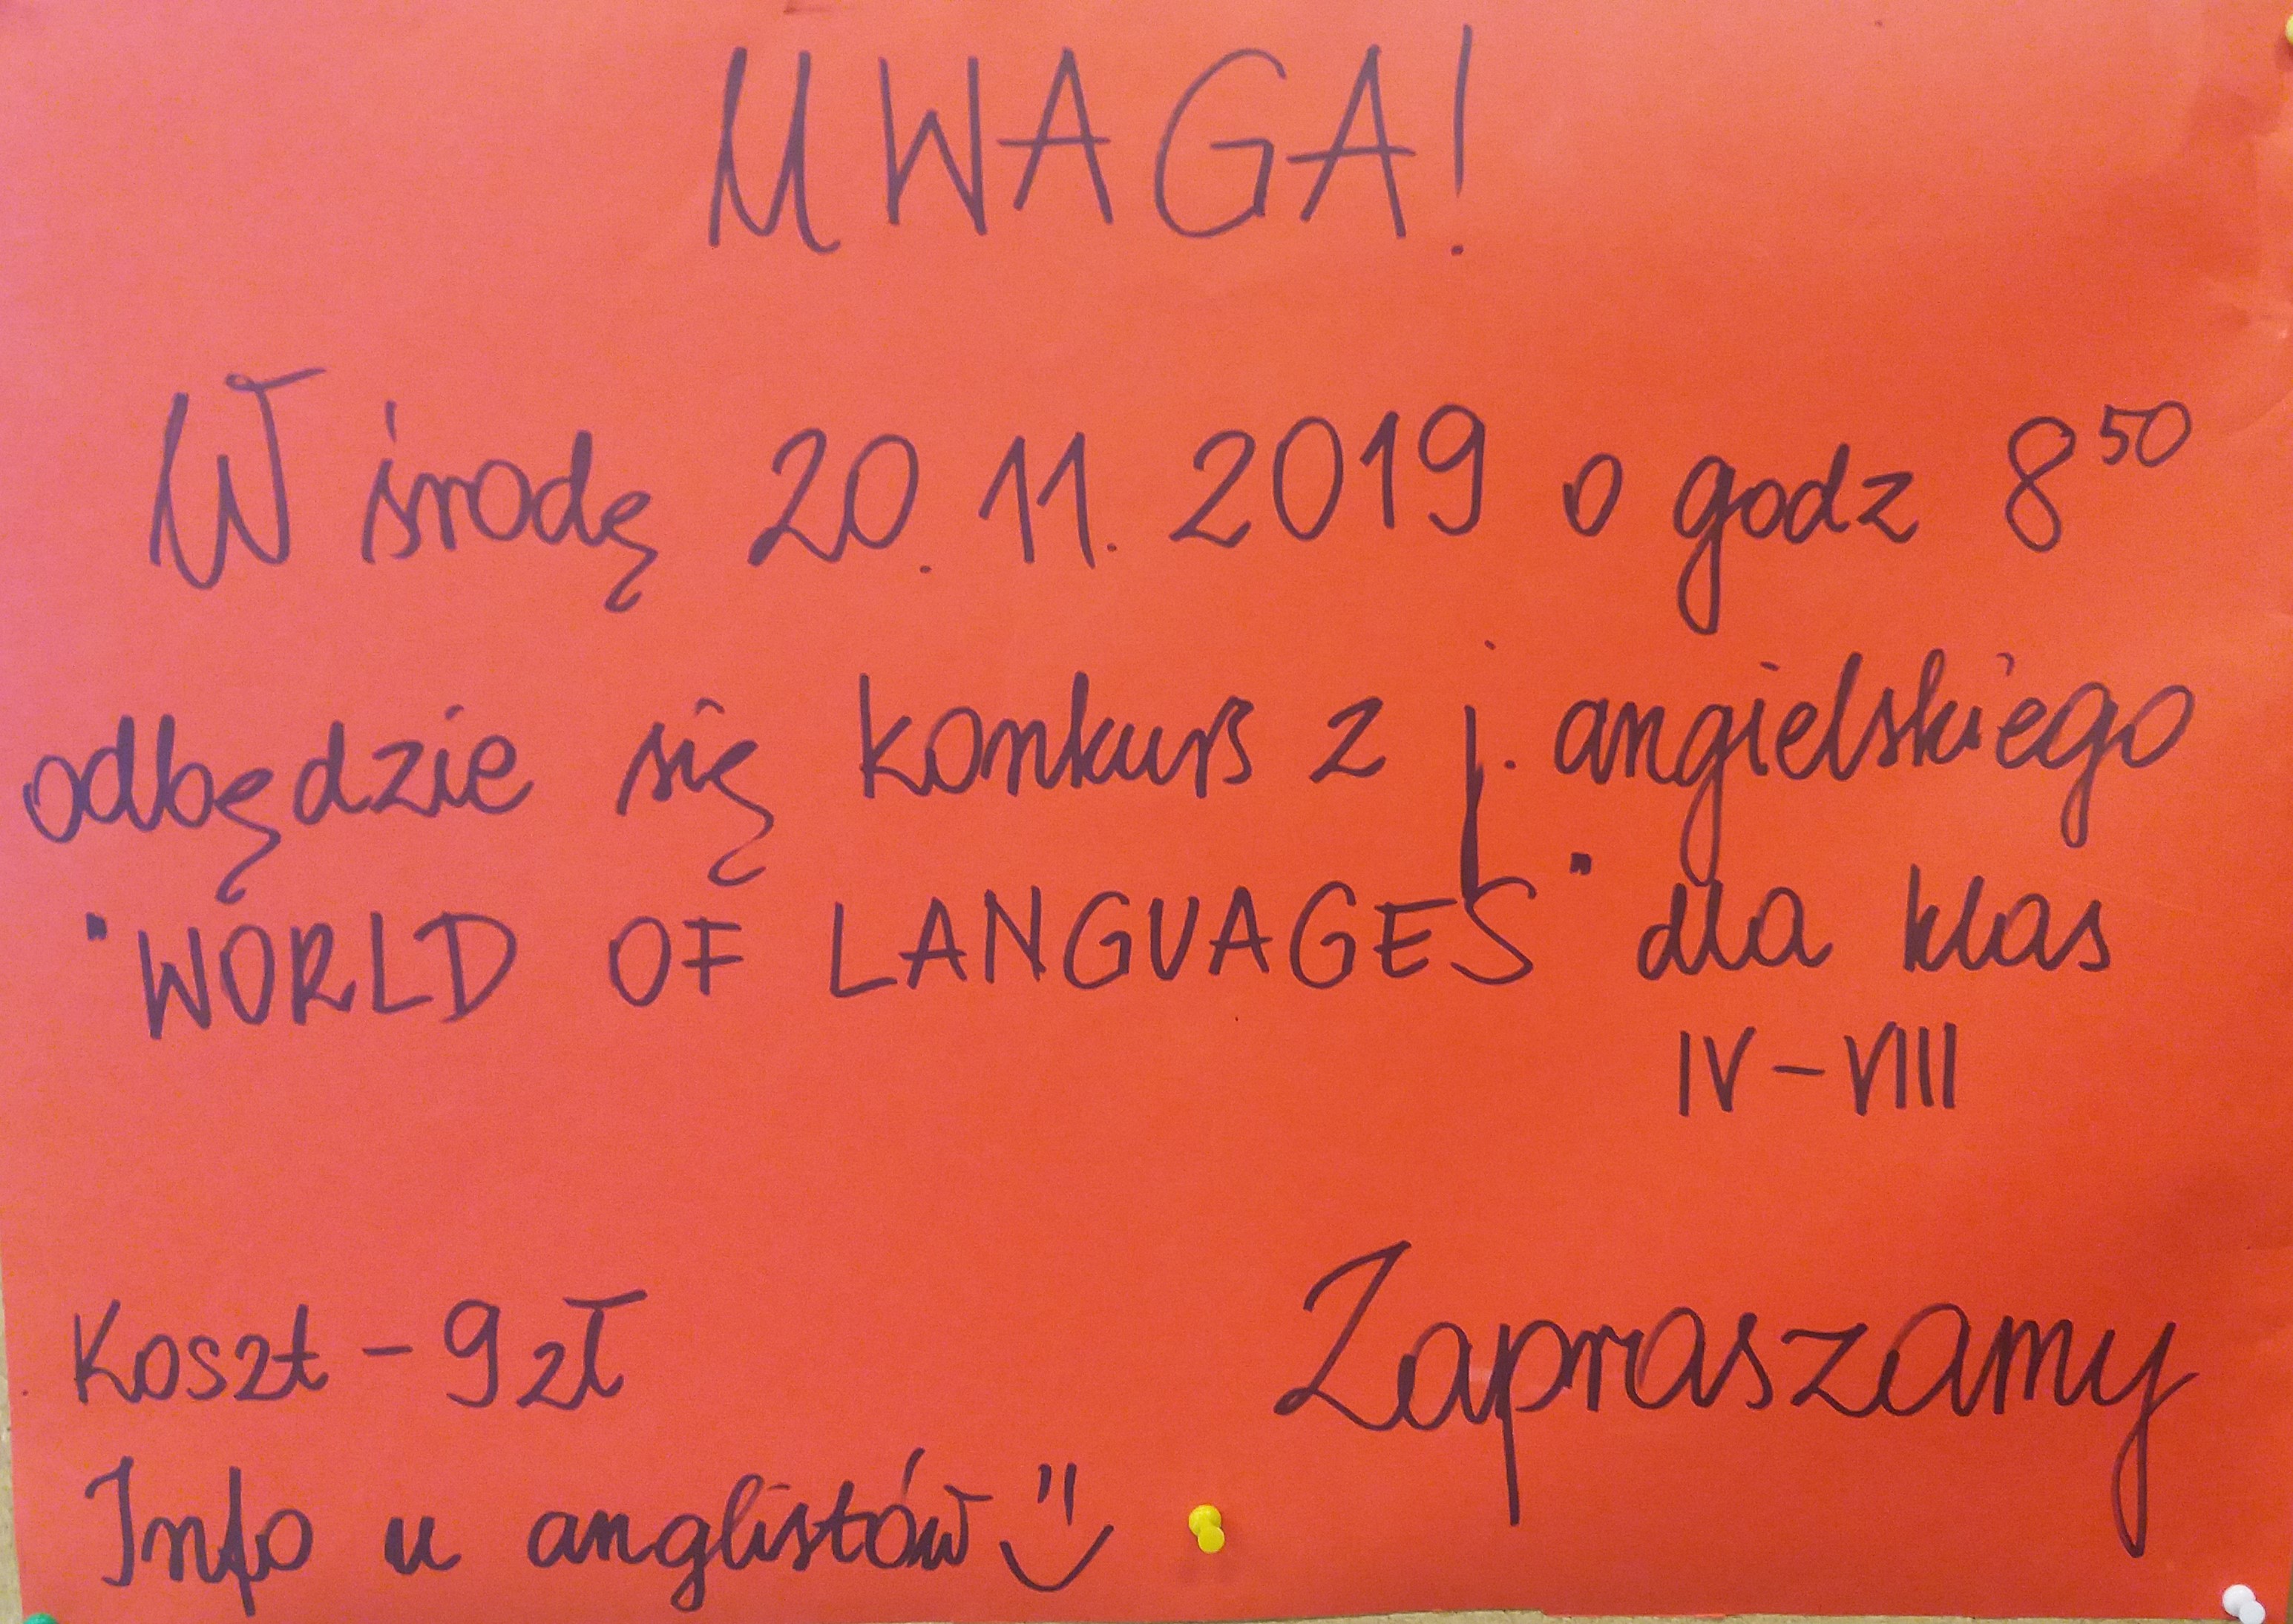 UWAGA!
W środę 20.11.2019 o godz 8⁵⁰
odbędzie się konkurs z j. angielskiego
"WORLD OF LANGUAGES" dla klas
IV-VIII
Koszt - 9 zł
Zapraszamy
Info u anglistów